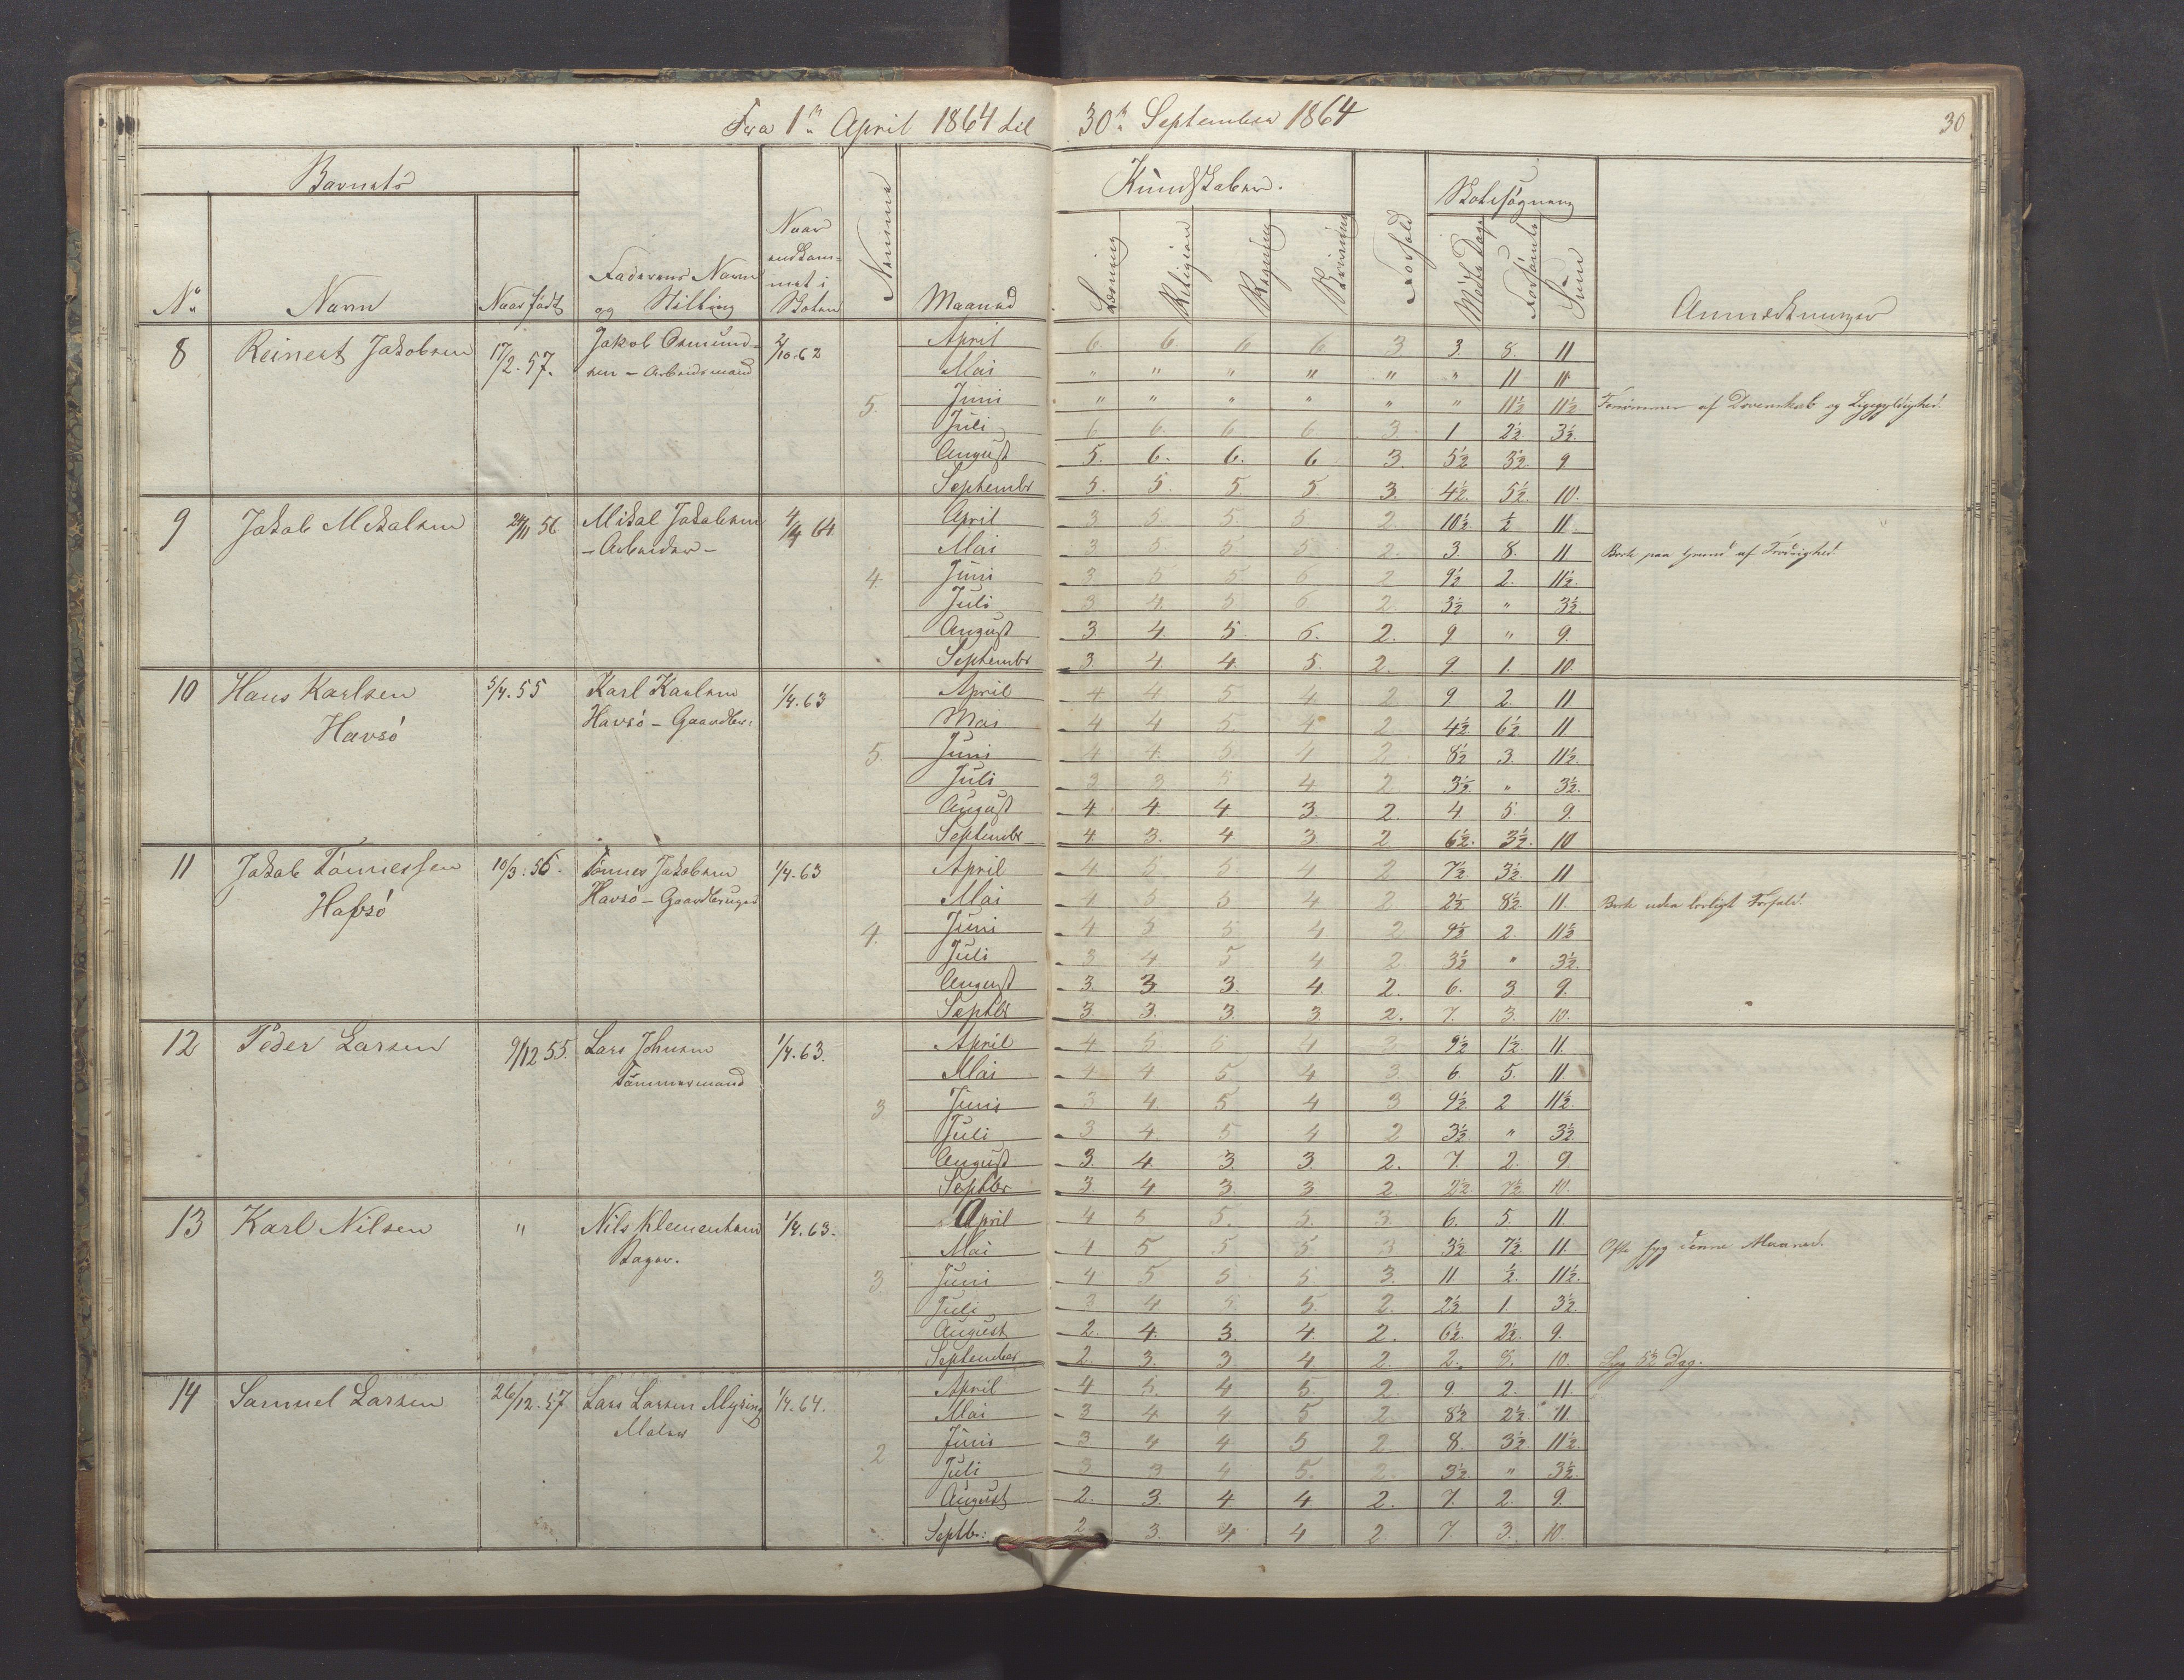 Fra 1ste April 1864 til 30te September 1864
30
Barnets
Kundskaber.
Skolesøgning
No
Navn
Naar født
Faderens Navn
og Stilling
Naar
indkom-
met i
Skolen
Maaned
Læsning
Religion
Regning
Skrivning
Forhold
Mødte Dage
Forsømte
Sum
Anmærkninger
8 Reinert Jakobsen 17/2.57. Jakob Osmund- 2/10.62
sen - Arbeidsmand
5.
April 6. 6. 6 6 3 3. 8. 11
Mai " " " " " " 11 11
Juni " " " " " " 11½ 11½ Forsømmer af Dovenskab og Ligegyldighed.
Juli 6 6. 6 6 3 1 2½ 3½.
August 5. 6. 6. 6 3. 5½ 3½. 9
Septembr 5. 5. 5 5. 3. 4½. 5½. 10.
9 Jakob Mikalsen 24/11 56 Mikal Jakobsen 4/4 64
- Arbeider -
4.
April 3 5 5 5 2 10½. ½ 11
Mai 3 5 5 5 2. 3. 8. 11 Borte paa Grund af
Juni 3 5 5 5 2 9½ 2. 11½.
Juli 3 4 5 5 2. 3½ " 3½.
August 3 4. 5. 5. 2. 9. " 9.
Septembr 3 4 4. 5. 2. 9 1. 10.
10 Hans Karlsen 5/4.55 Karl Karlsen 1/4.63
Havsö Havsö - Gaardbr:
5.
April 4 4 5 4 2 9 2. 11
Mai 4 4 5 4 2 4½. 6½ 11
Juni 4 4 5 4 2 8½ 3. 11½.
Juli 3 3 5 4 2 3½. " 3½.
August 4. 4 4 3. 2. 4. 5. 9.
Septembr 4 3. 4. 3. 2 6½. 3½. 10
11 Jakob Tönnessen 10/3.56. Tönnes Jakobsen 1/4.63
Hafsö Havsö - Gaardbruger
4.
April 4 5 5 4 2 7½ 3½ 11
Mai 4 5 5 4 2 2½ 8½. 11. Borte uden lovligt Forfald.
Juni 4 5 5 4 2 9½ 2. 11½
Juli 3 4 5 4 2 3½ " 3½.
August 3. 3 3. 4. 2. 6. 3 9.
Septbr 3. 3. 3. 3. 2. 7. 3. 10.
12 Peder Larsen 9/12 55. Lars Johnsen 1/4.63.
Tömmermand
3
April 4 5 5 4 3 9½ 1½. 11.
Mai 4 4 5 4 3. 6. 5. 11.
Juni 3 4. 5 4 3 9½. 2 11½.
Juli 3 4. 5 4 2 3½. " 3½.
August 3. 4. 3. 3. 2. 7. 2. 9.
Septbr 3. 4 3. 3 2 2½. 7½. 10.
13 Karl Nilsen " Nils Klementsen 1/4.63.
Bager.
3.
April 4 5 5. 5. 3. 6. 5. 11.
Mai 4 5 5 5 3 3½ 7½. 11. Ofte syg denne Maaned.
Juni 4 5 5 5. 3. 11 ½. 11½.
Juli 3 4 5 5. 2. 2½ 1. 3½.
August 2. 4. 3. 4. 2. 6½. 2½. 9.
September 2. 3. 3. 4. 2. 2. 8. 10. Syg 5½ Dag.
14 Samuel Larsen 26/12.57 Lars Larsen Mysing 1/4.64.
Maler
2
April 4 5. 4 5. 2. 9. 2. 11.
Mai 3 4 4 5 2 8½ 2½. 11.
Juni 3 4 4 5 2 8. 3½. 11½.
Juli 3 3 4 5. 2 3½. " 3½.
August 2. 3. 4. 4. 2. 7. 2. 9.
Septbr: 2 3. 4. 4 2 7. 3. 10.